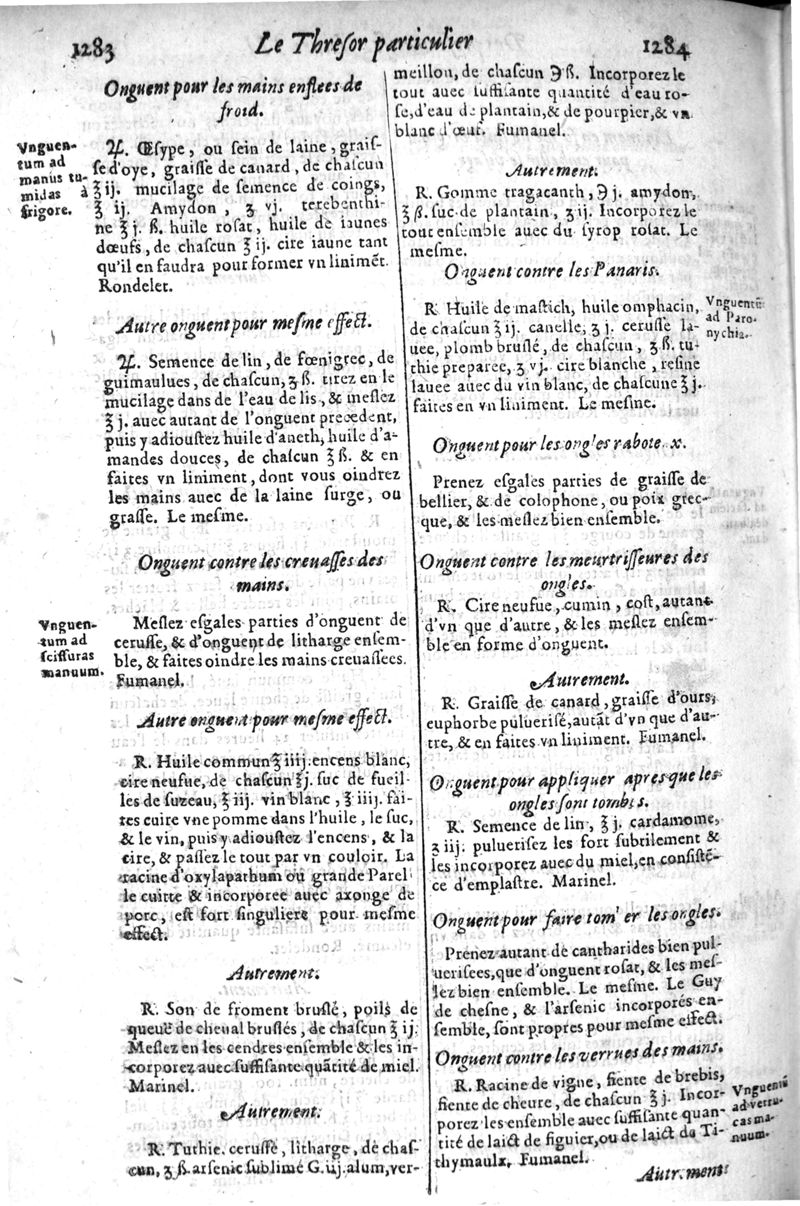 1283 Le Thresor particulier 1284
Onguent pour les mains enflees de
froid.
Vnguen-
tum ad
manus tu-
midas à
frigore.
♃. Œsype, ou sein de laine, grais-
se d'oye, graisse de canard, de chascun
℥ij. mucilage de semence de coings,
℥ ij. Amydon, ʒ vj. terebenthi-
ne ℥j. ß. huile rosat, huile de iaunes
d'œufs, de chascun ℥ij. cire iaune tant
qu'il en faudra pour former vn linimēt.
Rondelet.
Autre onguent pour mesme effect.
♃. Semence de lin, de fœnigrec, de
guimaulues, de chascun, ʒ ß. tirez en le
mucilage dans de l'eau de lis, & meslez
℥j. auec autant de l'onguent precedent,
puis y adioustez huile d'aneth, huile d'a-
mandes douces, de chascun ℥ß. & en
faites vn liniment, dont vous oindrez
les mains auec de la laine surge, ou
grasse. Le mesme.
Onguent contre les creuasses des
mains.
Vnguen-
tum ad
scissuras
manuum.
Meslez esgales parties d'onguent de
cerusse, & d'onguent de litharge ensem-
ble, & faites oindre les mains creuassees.
Fumanel.
Autre onguent pour mesme effect.
R. Huile commun ℥iiij. encens blanc,
cire neufue, de chascun ℥j. suc de fueil-
les de suzeau, ℥ij. vin blanc, ℥iiij. fai-
tes cuire vne pomme dans l'huile, le suc,
& le vin, puis y adioustez l'encens, & la
cire, & passez le tout par vn couloir. La
racine d'oxylapathum ou grande Parel
le cuitte & incorporee auec axonge de
porc, est fort singuliere pour mesme
effect.
Autrement.
R. Son de froment bruslé, poils de
queuë de cheual bruslés, de chascun ℥ij.
Meslez en les cendres ensemble & les in-
corporez auec suffisante quātité de miel.
Marinel.
Autrement.
R. Tuthie, cerusse, litharge, de chas-
cun, ʒ ß. arsenic sublimé G. iij. alum, ver-
meillon, de chascun ℈ ß. Incorporez le
tout auec suffisante quantité d'eau ro-
se, d'eau de plantain, & de pourpier, & vn
blanc d'œuf. Fumanel.
Autrement.
R. Gomme tragacanth, ℈ j. amydon,
℥ß. suc de plantain, ʒij. Incorporez le
tout ensemble auec du syrop rosat. Le
mesme.
Onguent contre les Panaris.
Vnguentū
ad Paro-
nychia.
R. Huile de mastich, huile omphacin,
de chascun ℥ij. canelle, ʒj. cerusse la-
uee, plomb bruslé, de chascun, ʒß. tu-
thie preparee, ʒ vj. cire blanche, resine
lauee auec du vin blanc, de chascune ℥j.
faites en vn liniment. Le mesme.
Onguent pour les ongles raboteux.
Prenez esgales parties de graisse de
bellier, & de colophone, ou poix grec-
que, & les meslez bien ensemble.
Onguent contre les meurtrisseures des
ongles.
R. Cire neufue, cumin, cost, autant
d'vn que d'autre, & les meslez ensem-
ble en forme d'onguent.
Autrement.
R. Graisse de canard, graisse d'ours,
euphorbe puluerisé, autāt d'vn que d'au-
tre, & en faites vn liniment. Fumanel.
Onguent pour appliquer apres que les
ongles sont tombés.
R. Semence de lin, ℥j. cardamome,
ʒiij. puluerisez les fort subtilement &
les incorporez auec du miel, en consistē-
ce d'emplastre. Marinel.
Onguent pour faire tomber les ongles.
Prenez autant de cantharides bien pul-
uerisees, que d'onguent rosat, & les mes-
lez bien ensemble. Le mesme. Le Guy
de chesne, & l'arsenic incorporés en-
semble, sont propres pour mesme effect.
Onguent contre les verrues des mains.
Vnguentū
ad verru-
cas ma-
nuum.
R. Racine de vigne, fiente de brebis,
fiente de cheure, de chascun ℥j. Incor-
porez les ensemble auec suffisante quan-
tité de laict de figuier, ou de laict de Ti-
thymaulx, Fumanel.
Autrement